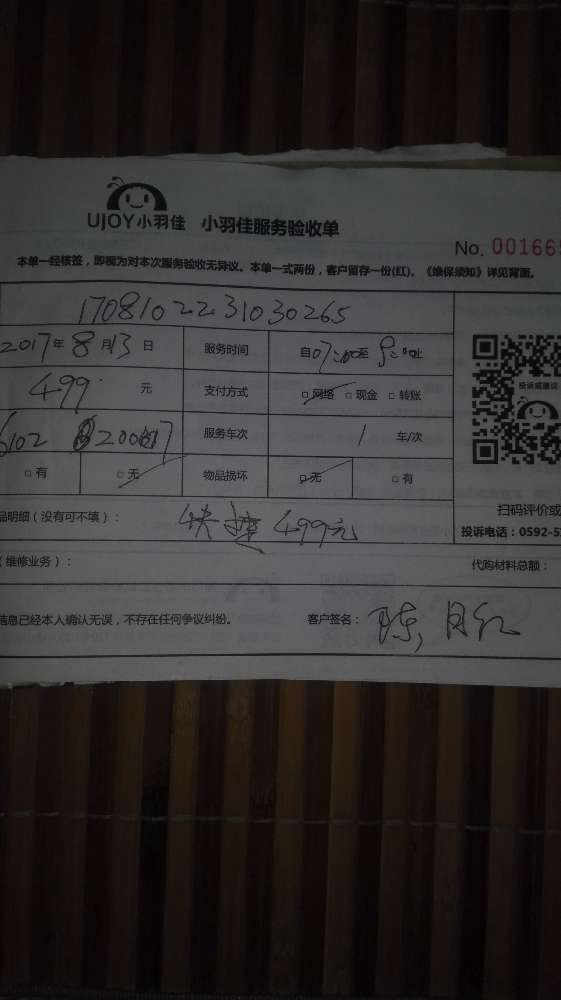 UJOY小羽佳 小羽佳服务验收单
No. 00166
本单一经核签，即视为对本次服务验收无异议。本单一式两份，客户留存一份(红)。《维保须知》详见背面。
1708102231030265
2017年8月13日 服务时间 自07:00至9:00止
499 元 支付方式 □网络 □现金 □转账
投诉或建议
6102 服务车次 1 车/次
□有 □无 物品损坏 □无 □有
品明细（没有可不填）： 快捷 499元
扫码评价或
投诉电话：0592-5
（维修业务）： 代购材料总额：
信息已经本人确认无误，不存在任何争议纠纷。 客户签名： 陈月红